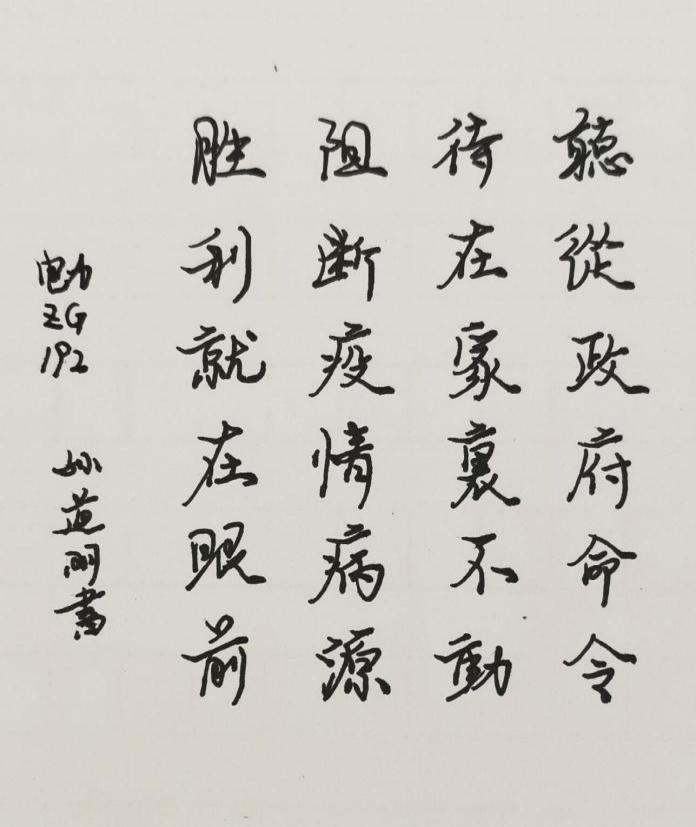 聽從政府命令
待在家裏不動
阻断疫情病源
胜利就在眼前
电力
ZG
192
孙道明書